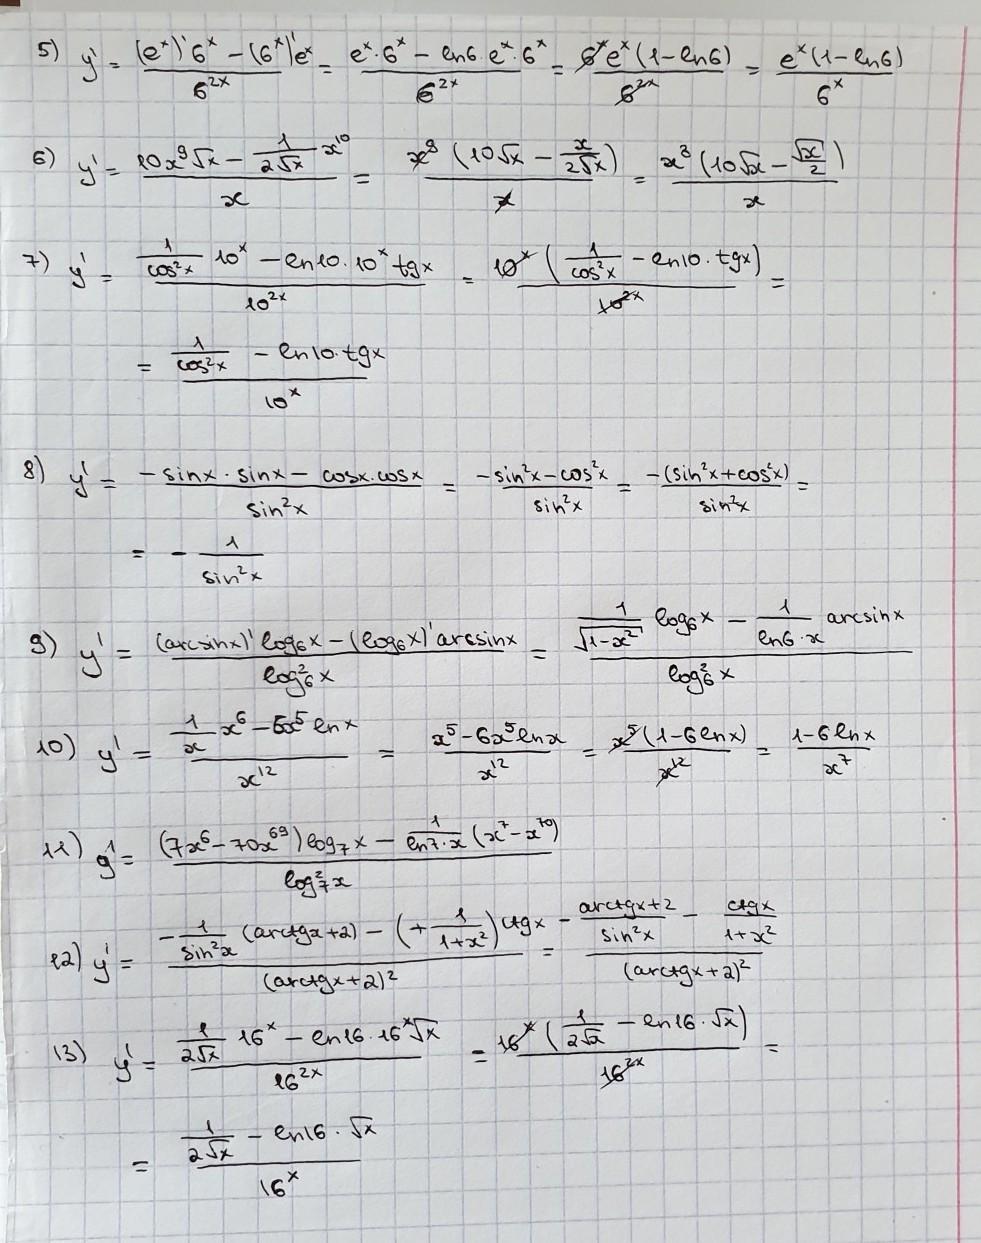 5) y' = ((e^x)' 6^x − (6^x)' e^x)/6^(2x) = (e^x · 6^x − ln6 · e^x · 6^x)/6^(2x) = (6^x e^x (1 − ln6))/6^(2x) = (e^x (1 − ln6))/6^x
6) y' = (10x^9 √x − (1/(2√x)) x^10)/x = (x^9 (10√x − x/(2√x)))/x = (x^8 (10√x − √x/2))/x
7) y' = ((1/cos²x) 10^x − ln10 · 10^x tgx)/10^(2x) = (10^x (1/cos²x − ln10 · tgx))/10^(2x) =
= (1/cos²x − ln10 · tgx)/10^x
8) y' = (−sinx · sinx − cosx · cosx)/sin²x = (−sin²x − cos²x)/sin²x = (−(sin²x + cos²x))/sin²x =
= − 1/sin²x
9) y' = ((arcsinx)' log₆x − (log₆x)' arcsinx)/log₆²x = ((1/√(1−x²)) log₆x − (1/(ln6 · x)) arcsinx)/log₆²x
10) y' = ((1/x) x^6 − 6x^5 lnx)/x^12 = (x^5 − 6x^5 lnx)/x^12 = (x^5 (1 − 6lnx))/x^12 = (1 − 6lnx)/x^7
11) y' = ((7x^6 − 70x^69) log₇x − (1/(ln7 · x)) (x^7 − x^70))/log₇²x
12) y' = (−(1/sin²x) (arctgx + 2) − (+ 1/(1+x²)) ctgx)/(arctgx + 2)² = (−(arctgx + 2)/sin²x − ctgx/(1+x²))/(arctgx + 2)²
13) y' = ((1/(2√x)) 16^x − ln16 · 16^x √x)/16^(2x) = (16^x (1/(2√x) − ln16 · √x))/16^(2x) =
= (1/(2√x) − ln16 · √x)/16^x